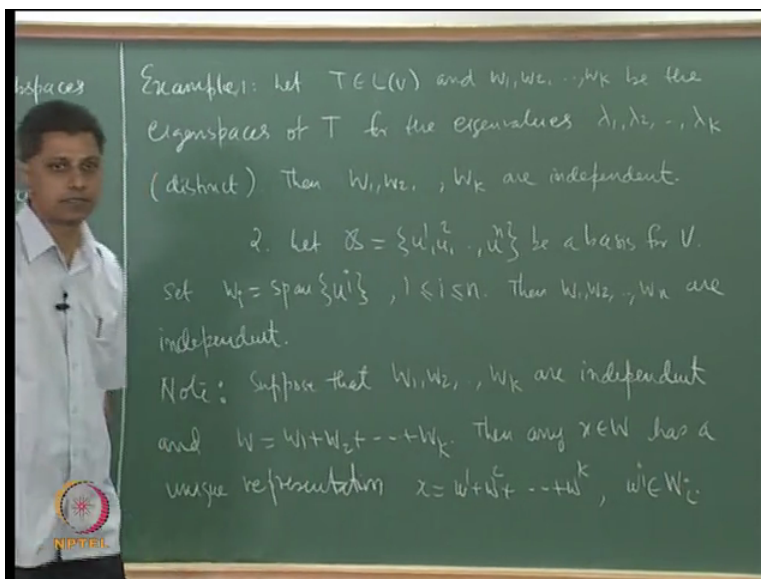 bspaces
Example 1: Let T ∈ L(V) and W₁, W₂, .., Wₖ be the
eigenspaces of T for the eigenvalues λ₁, λ₂, .., λₖ
(distinct) Then W₁, W₂, , Wₖ are independent.
2. Let ℬ = {u¹, u², .., uⁿ} be a basis for V.
Set Wᵢ = span {uⁱ}, 1 ≤ i ≤ n. Then W₁, W₂, .., Wₙ are
independent.
Note: Suppose that W₁, W₂, .., Wₖ are independent
and W = W₁ + W₂ + --- + Wₖ. Then any x ∈ W has a
unique representation x = w¹ + w² + --- + wᵏ, wⁱ ∈ Wᵢ.
NPTEL